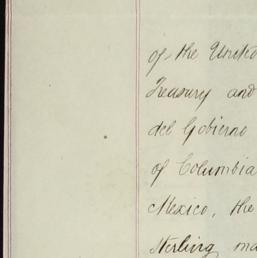 of the United
Treasury and
del Gobierno
of Columbia
Mexico, the
Sterling ma